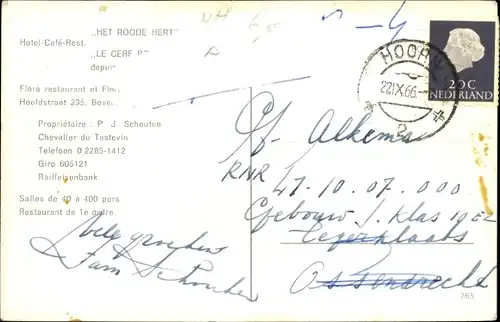 NH
„HET ROODE HERT"
Hotel-Café-Rest.
„LE CERF RO
depuis
Flora restaurant et Flor
Hoofdstraat 235, Boven
Propriétaire : P. J. Schouten
Chevalier du Tastevin
Telefoon D 2285-1412
Giro 605121
Raiffeisenbank
Salles de 40 a 400 pers
Restaurant de 1e ordre.
Vele groeten
Fam Schouten
HOORN
22.IX.66
2
20C
NEDERLAND
Alkema
RNR 47.10.07.000
Gebouw J. Klas 1952
Legerplaats
Ossendrecht
765